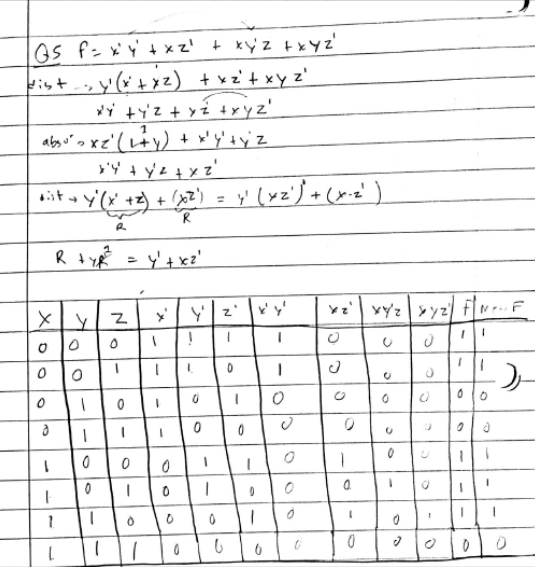 Q5 f = x'y' + xz' + xy'z + xyz'
dist → y'(x' + xz) + xz' + xyz'
x'y' + y'z + xz' + xyz'
absor → xz'(1+y) + x'y' + y'z
x'y' + y'z + xz'
dist → y'(x' + z) + (xz') = y'(xz')' + (x·z')
R R
R + y'R' = y' + xz'
x y z x' y' z' x'y' xz' xy'z xyz' f New F
0 0 0 1 1 1 1 0 0 0 1 1
0 0 1 1 1 0 1 0 0 0 1 1
0 1 0 1 0 1 0 0 0 0 0 0
0 1 1 1 0 0 0 0 0 0 0 0
1 0 0 0 1 1 0 1 0 0 1 1
1 0 1 0 1 0 0 0 1 0 1 1
1 1 0 0 0 1 0 1 0 1 1 1
1 1 1 0 0 0 0 0 0 0 0 0